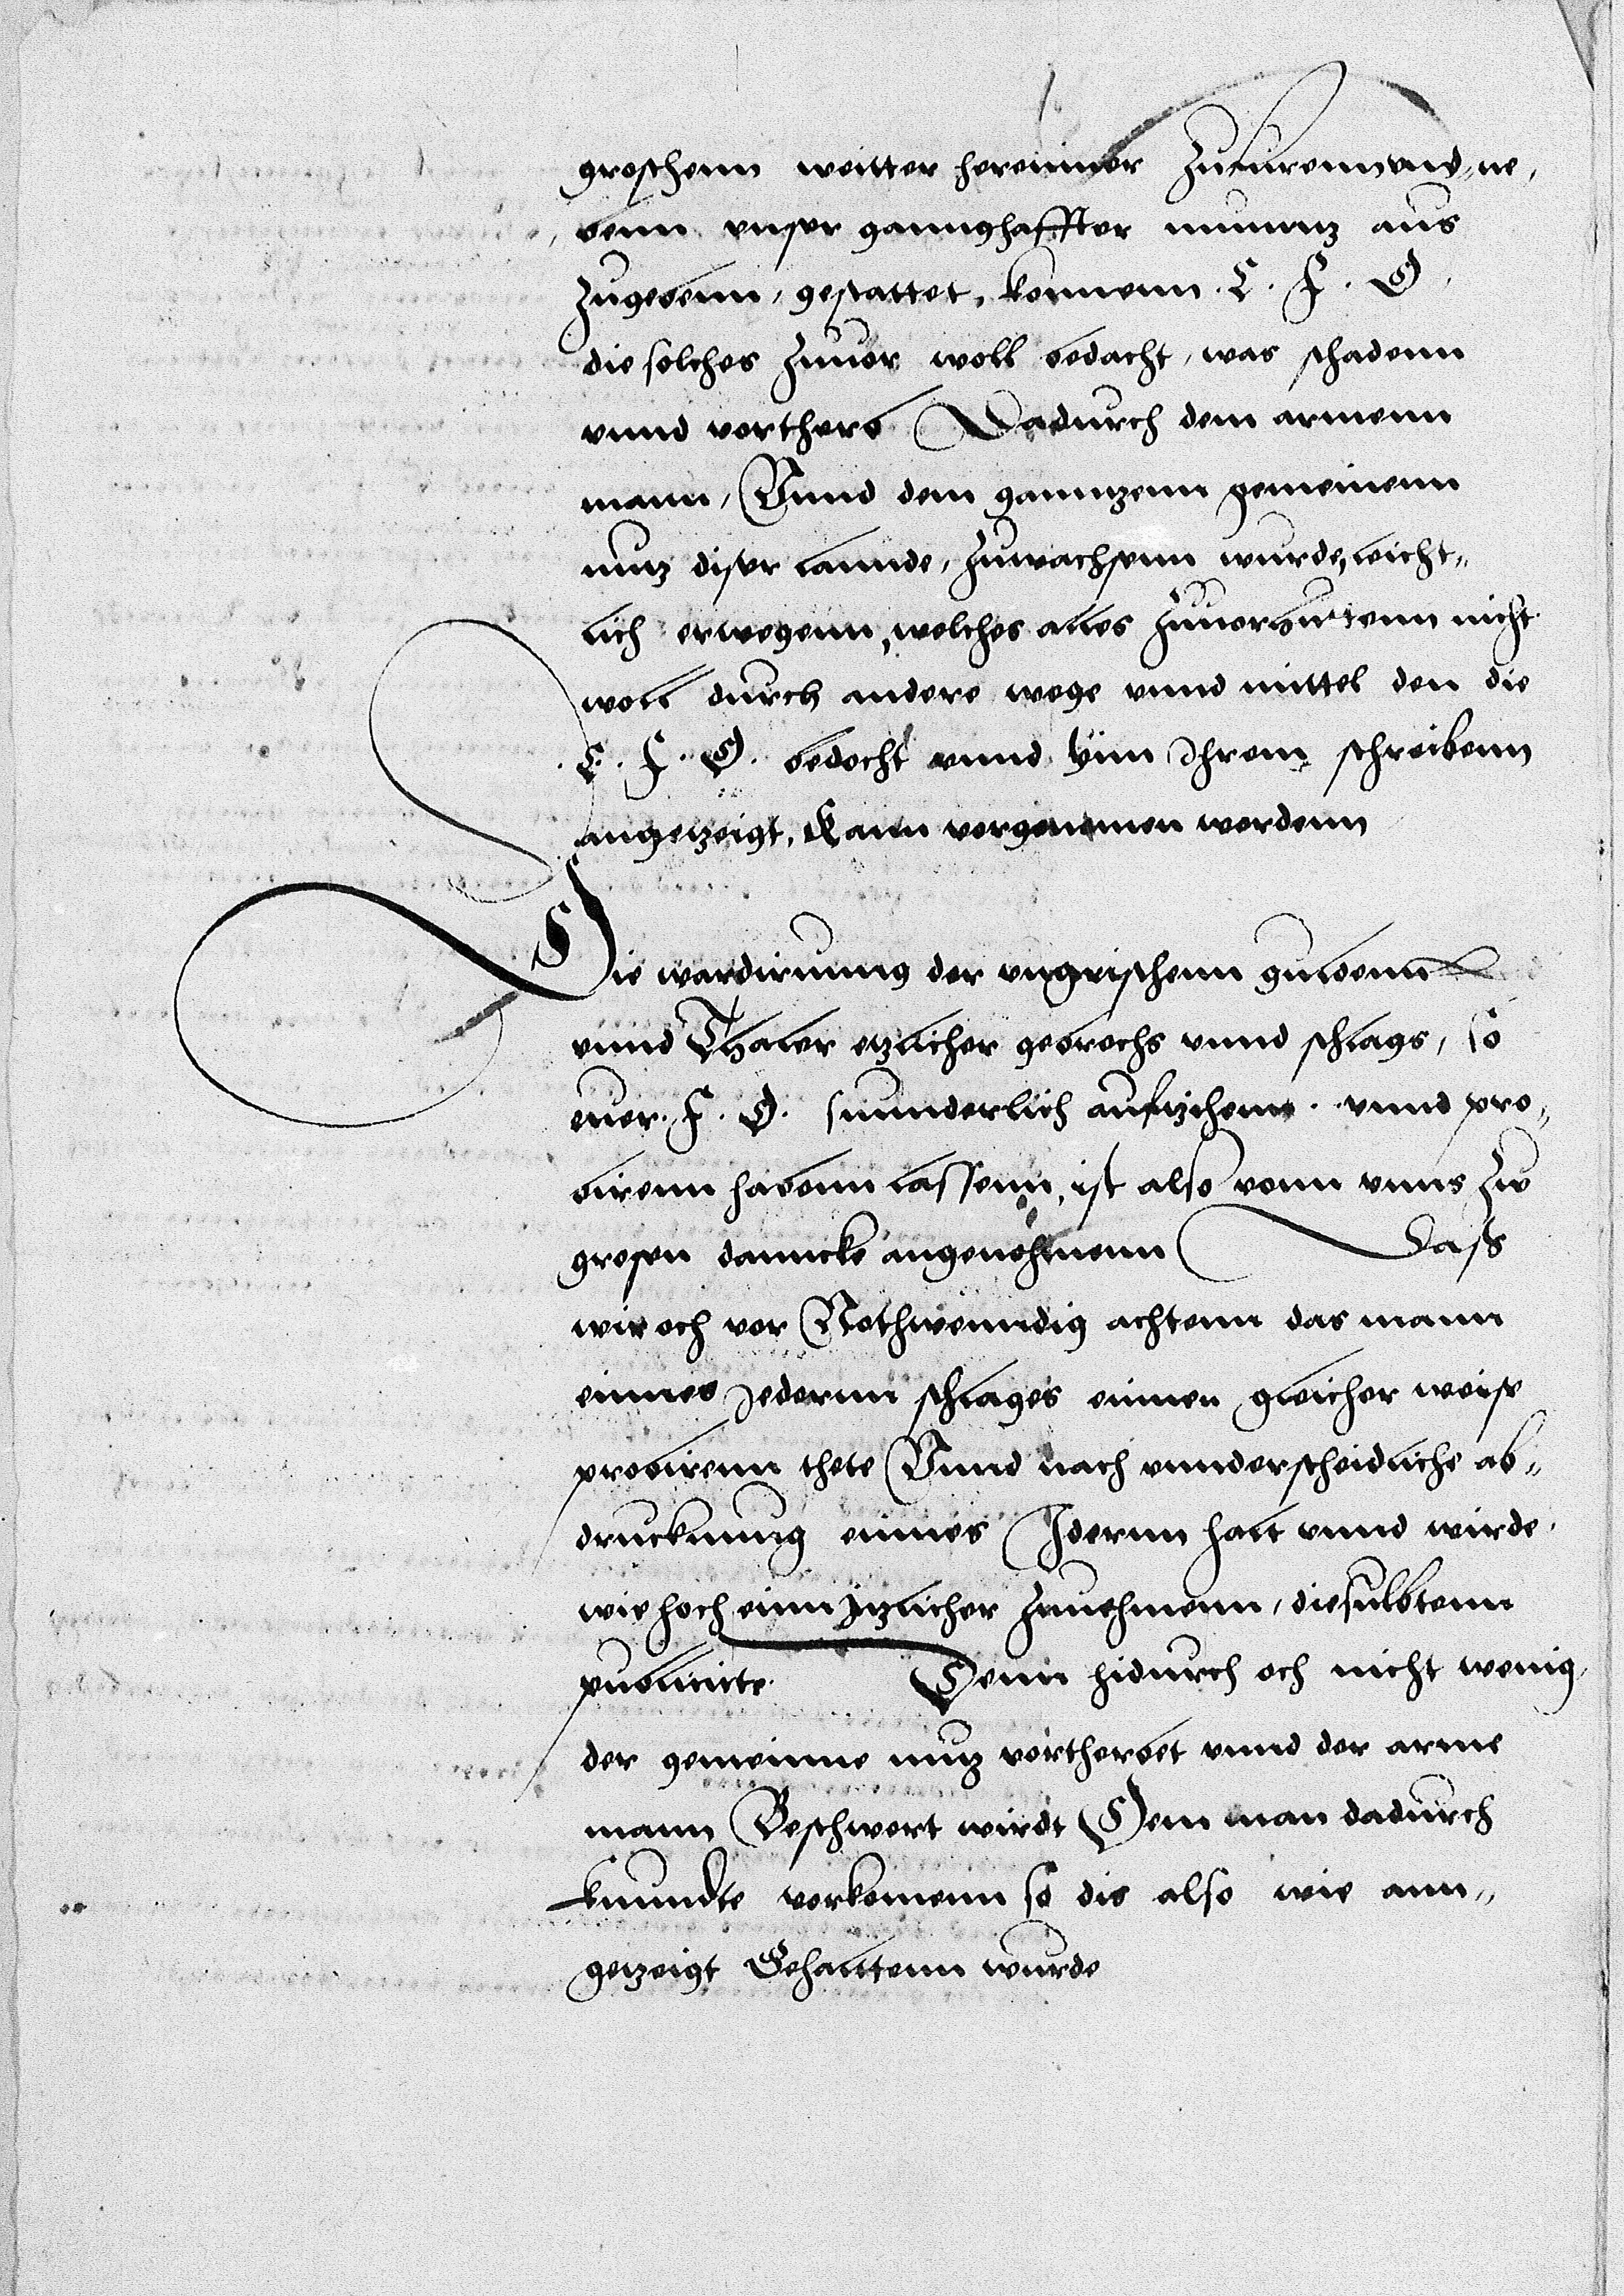 groschenn weitter hereinner Zufurenn vnd ne,
benn vnser ganghaffter muntz aus
Zugebenn, gestattet, konnenn. E. F. G.
die solches Zuuor woll bedacht, was schadenn
vnnd vortherb Dadurch dem armenn
mann, Vnnd dem ganntzenn gemeinenn
nutz diser lannde, Zuwachsenn wurde, leicht„
lich erwegenn, welches alles Zuuorhutenn nicht
woll durch andere wege vnnd mittel den die
E. F. G. bedocht vnnd Ynn Ihrem schreibenn
angezeigt, Kann vorgenomen werdenn
Die wardirunng der vngrischenn guldenn
vnnd Thaler etzlicher gebrechs vnnd schlags, so
euer. F. G. sunnderlich aufzihenn. vnnd pro„
birenn habenn lassenn, ist also vonn vnns Zu
grosen dancke angenohmenn Dass
wir och vor Nothwenndig achtenn das mann
einnes Jedernn schlages einnen gleicher weise
probirenn thete Vnnd nach vnnderscheidliche ab„
druckung einnes Idernn halt vnnd wirde.
wie hoch einn Itzlicher Zunehmenn, diesulbtenn
publicirte. Denn hidurch och nicht wenig,
der gemeinne nutz vortherbet vnnd der arme
mann Beschwert wirdt Dem man dadurch
kunndte vorkomenn so dis also wie ann„
gezeigt Gehaltenn wurde